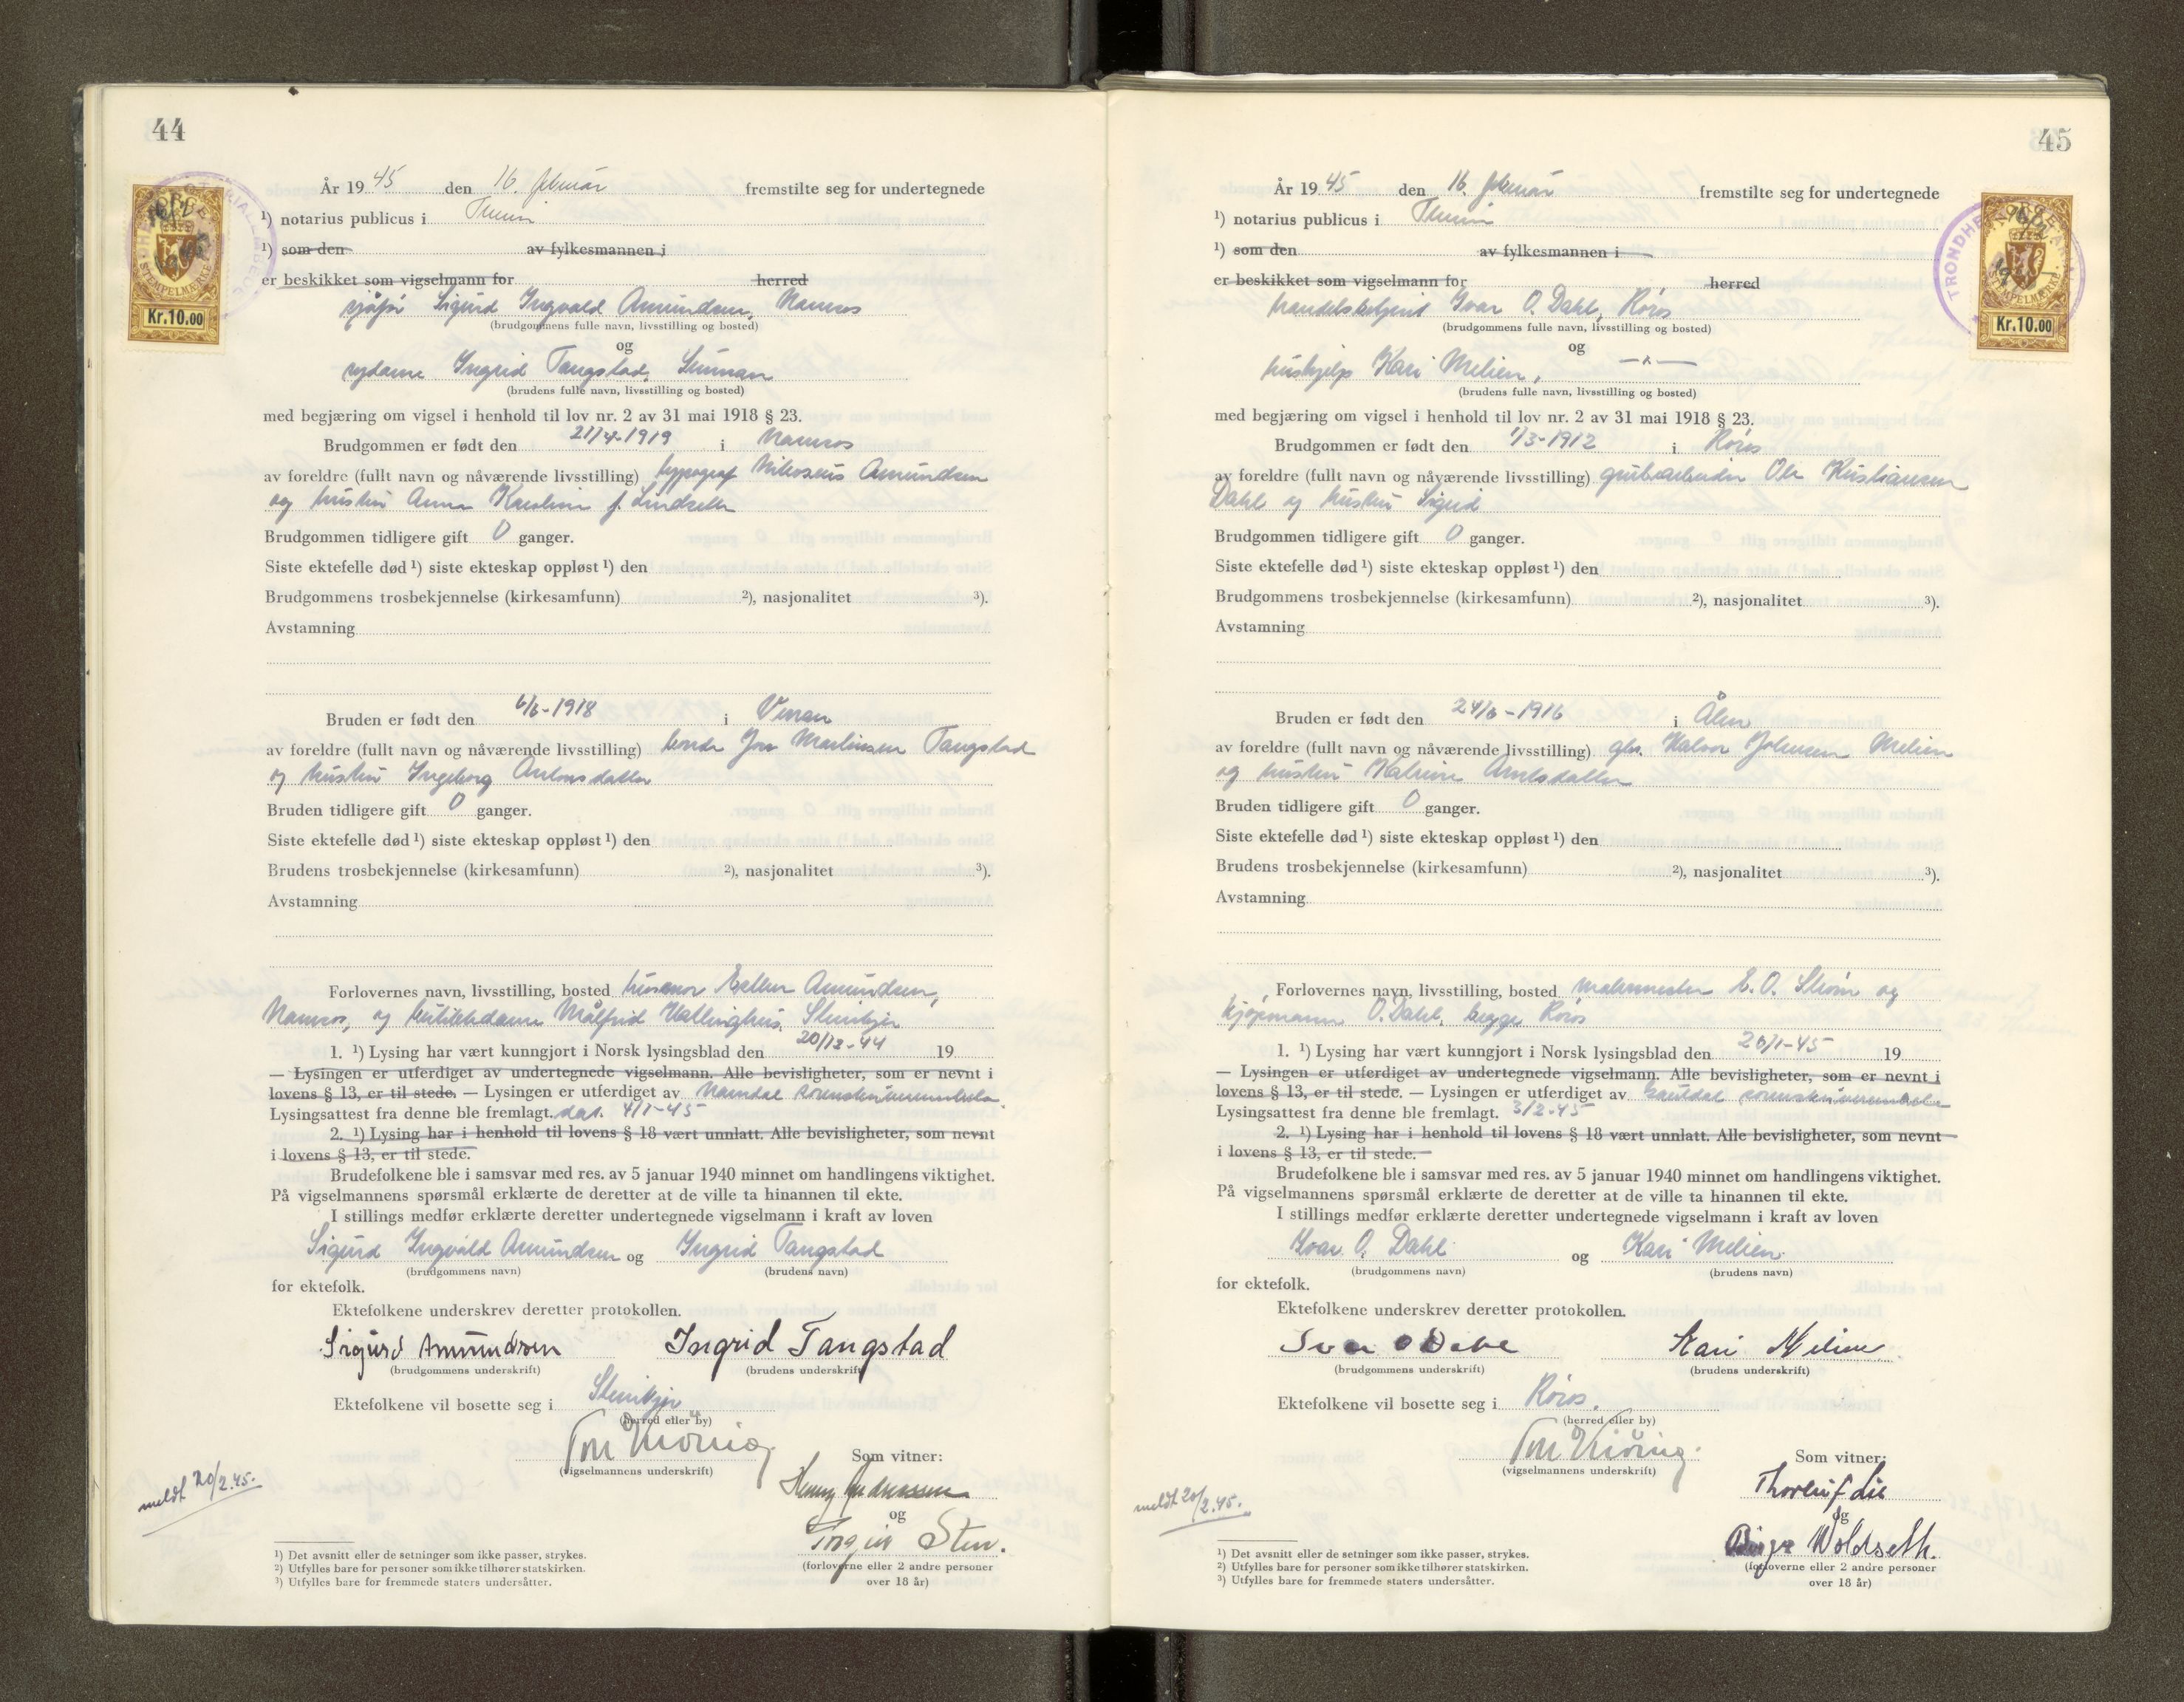 44
År 1945 den 16. februar fremstilte seg for undertegnede
1) notarius publicus i
1) som den av fylkesmannen i
er beskikket som vigselmann for herred
sjåfør Sigurd Ingvald Amundsen, Namsos
(brudgommens fulle navn, livsstilling og bosted)
og
sydame Ingrid Tangstad,
(brudens fulle navn, livsstilling og bosted)
med begjæring om vigsel i henhold til lov nr. 2 av 31 mai 1918 § 23.
Brudgommen er født den 21/4-1919 i Namsos
av foreldre (fullt navn og nåværende livsstilling) typograf Amundsen
og hustru Anna f.
Brudgommen tidligere gift 0 ganger.
Siste ektefelle død 1) siste ekteskap oppløst 1) den
Brudgommens trosbekjennelse (kirkesamfunn) 2), nasjonalitet 3).
Avstamning
Bruden er født den 1918 i Verran
av foreldre (fullt navn og nåværende livsstilling) bonde Jon Martinsen Tangstad
og hustru Ingeborg Antonsdatter
Bruden tidligere gift 0 ganger.
Siste ektefelle død 1) siste ekteskap oppløst 1) den
Brudens trosbekjennelse (kirkesamfunn) 2), nasjonalitet 3).
Avstamning
Forlovernes navn, livsstilling, bosted husmor Amundsen,
Namsos, og butikkdame Målfrid Steinkjer
1. 1) Lysing har vært kunngjort i Norsk lysingsblad den 20/12-44 19
— Lysingen er utferdiget av undertegnede vigselmann. Alle bevisligheter, som er nevnt i
lovens § 13, er til stede. — Lysingen er utferdiget av Namdal sorenskriverembete.
Lysingsattest fra denne ble fremlagt. dat. 4/1-45
2. 1) Lysing har i henhold til lovens § 18 vært unnlatt. Alle bevisligheter, som nevnt
i lovens § 13, er til stede.
Brudefolkene ble i samsvar med res. av 5 januar 1940 minnet om handlingens viktighet.
På vigselmannens spørsmål erklærte de deretter at de ville ta hinannen til ekte.
I stillings medfør erklærte deretter undertegnede vigselmann i kraft av loven
Sigurd Ingvald Amundsen og Ingrid Tangstad
(brudgommens navn) (brudens navn)
for ektefolk.
Ektefolkene underskrev deretter protokollen.
Sigurd Amundsen Ingrid Tangstad
(brudgommens underskrift) (brudens underskrift)
Ektefolkene vil bosette seg i Steinkjer
(herred eller by)
(vigselmannens underskrift) Som vitner:
Henry Andreassen
og
Sten.
(forloverne eller 2 andre personer
over 18 år)
meldt 20/2.45.
1) Det avsnitt eller de setninger som ikke passer, strykes.
2) Utfylles bare for personer som ikke tilhører statskirken.
3) Utfylles bare for fremmede staters undersåtter.
NORGE
STEMPELMÆRKE
Kr.10.00
45
År 1945 den 16. februar fremstilte seg for undertegnede
1) notarius publicus i
1) som den av fylkesmannen i
er beskikket som vigselmann for herred
handelsbetjent Ivar O. Dahl, Röros
(brudgommens fulle navn, livsstilling og bosted)
og
hushjelp Kari Melien, —"—
(brudens fulle navn, livsstilling og bosted)
med begjæring om vigsel i henhold til lov nr. 2 av 31 mai 1918 § 23.
Brudgommen er født den 1/3-1912 i Röros
av foreldre (fullt navn og nåværende livsstilling) grubearbeider Ole Kristiansen
Dahl og hustru Sigrid
Brudgommen tidligere gift 0 ganger.
Siste ektefelle død 1) siste ekteskap oppløst 1) den
Brudgommens trosbekjennelse (kirkesamfunn) 2), nasjonalitet 3).
Avstamning
Bruden er født den 1916 i Ålen
av foreldre (fullt navn og nåværende livsstilling) gbr. Halvor Johnsen Melien
og hustru Katrine
Bruden tidligere gift 0 ganger.
Siste ektefelle død 1) siste ekteskap oppløst 1) den
Brudens trosbekjennelse (kirkesamfunn) 2), nasjonalitet 3).
Avstamning
Forlovernes navn, livsstilling, bosted malermester E. O. Ström og
kjøpmann O. Dahl, begge Röros
1. 1) Lysing har vært kunngjort i Norsk lysingsblad den 20/1-45 19
— Lysingen er utferdiget av undertegnede vigselmann. Alle bevisligheter, som er nevnt i
lovens § 13, er til stede. — Lysingen er utferdiget av Gauldal sorenskriverembete
Lysingsattest fra denne ble fremlagt. 3/2-45
2. 1) Lysing har i henhold til lovens § 18 vært unnlatt. Alle bevisligheter, som nevnt
i lovens § 13, er til stede.
Brudefolkene ble i samsvar med res. av 5 januar 1940 minnet om handlingens viktighet.
På vigselmannens spørsmål erklærte de deretter at de ville ta hinannen til ekte.
I stillings medfør erklærte deretter undertegnede vigselmann i kraft av loven
Ivar O. Dahl og Kari Melien
(brudgommens navn) (brudens navn)
for ektefolk.
Ektefolkene underskrev deretter protokollen.
Ivar O Dahl Kari Melien
(brudgommens underskrift) (brudens underskrift)
Ektefolkene vil bosette seg i Röros.
(herred eller by)
(vigselmannens underskrift) Som vitner:
Thorleif Lie
og
Woldseth.
(forloverne eller 2 andre personer
over 18 år)
meldt 20/2.45.
1) Det avsnitt eller de setninger som ikke passer, strykes.
2) Utfylles bare for personer som ikke tilhører statskirken.
3) Utfylles bare for fremmede staters undersåtter.
TRONDHEIM
NORGE
STEMPELMÆRKE
Kr.10.00